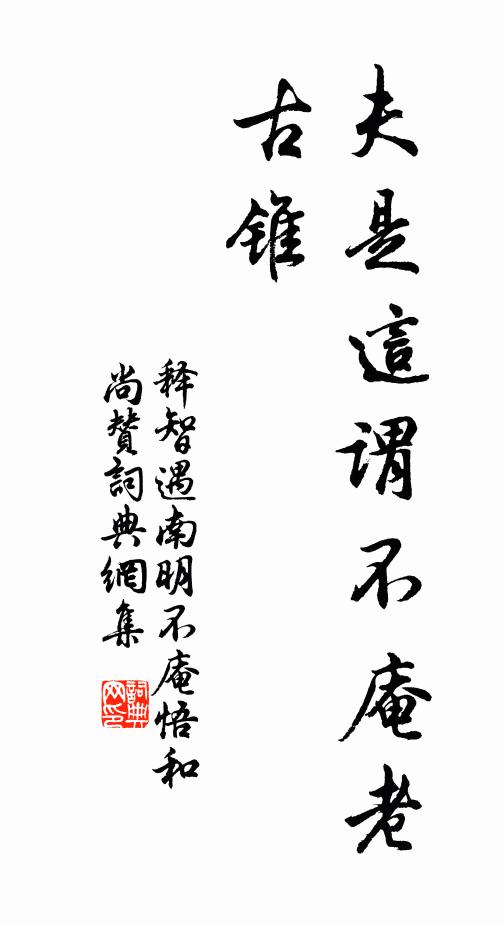 夫是這謂不庵老
古錐
释智遇南明不庵悟和
尚贊詞典網集
詞典
网印